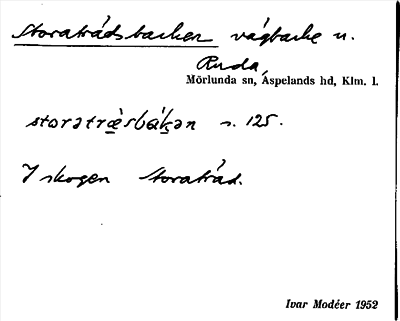 Storaträdsbacken vägbacke n.
Ruda,
Mörlunda sn, Aspelands hd, Klm. l.
storatræ̀sbákan s. 125.
I skogen Storaträd.
Ivar Modéer 1952